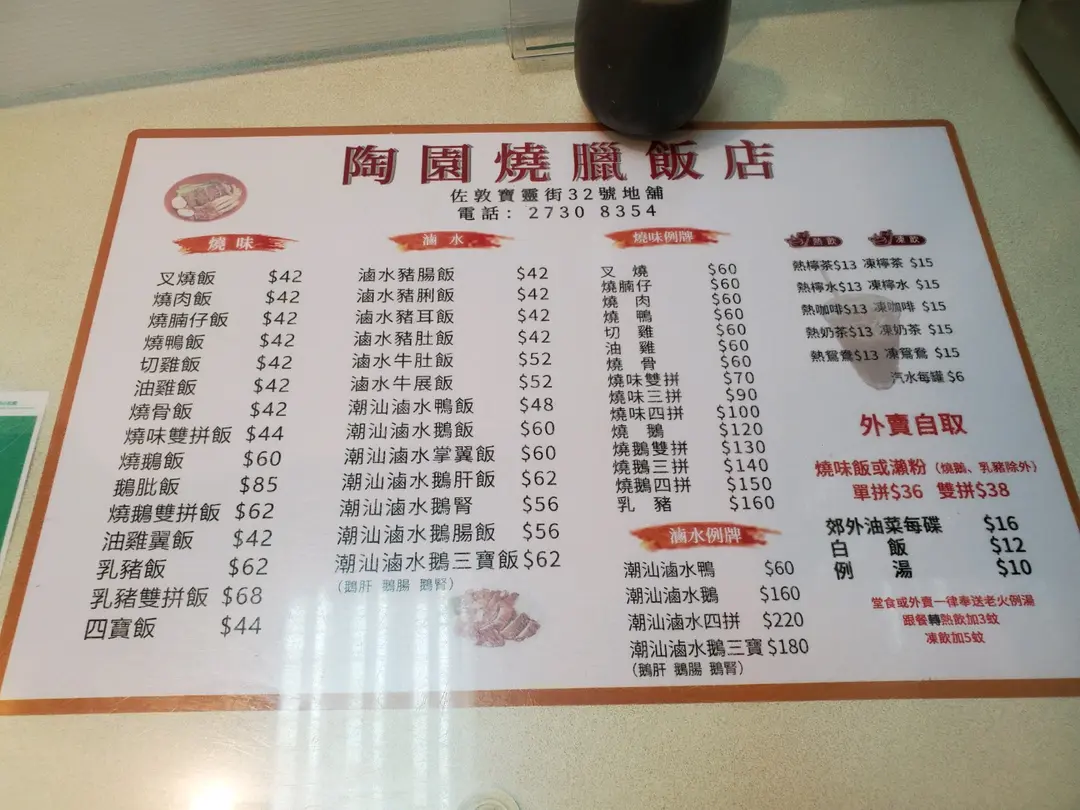 陶園燒臘飯店
佐敦寶靈街32號地舖
電話: 2730 8354
燒味
叉燒飯 $42
燒肉飯 $42
燒腩仔飯 $42
燒鴨飯 $42
切雞飯 $42
油雞飯 $42
燒骨飯 $42
燒味雙拼飯 $44
燒鵝飯 $60
鵝肶飯 $85
燒鵝雙拼飯 $62
油雞翼飯 $42
乳豬飯 $62
乳豬雙拼飯 $68
四寶飯 $44
滷水
滷水豬腸飯 $42
滷水豬脷飯 $42
滷水豬耳飯 $42
滷水豬肚飯 $42
滷水牛肚飯 $52
滷水牛展飯 $52
潮汕滷水鴨飯 $48
潮汕滷水鵝飯 $60
潮汕滷水掌翼飯 $60
潮汕滷水鵝肝飯 $62
潮汕滷水鵝腎 $56
潮汕滷水鵝腸飯 $56
潮汕滷水鵝三寶飯 $62
(鵝肝 鵝腸 鵝腎)
燒味例牌
叉燒 $60
燒腩仔 $60
燒肉 $60
燒鴨 $60
切雞 $60
油雞 $60
燒骨 $60
燒味雙拼 $70
燒味三拼 $90
燒味四拼 $100
燒鵝 $120
燒鵝雙拼 $130
燒鵝三拼 $140
燒鵝四拼 $150
乳豬 $160
滷水例牌
潮汕滷水鴨 $60
潮汕滷水鵝 $160
潮汕滷水四拼 $220
潮汕滷水鵝三寶 $180
(鵝肝 鵝腸 鵝腎)
熱飲 凍飲
熱檸茶$13 凍檸茶 $15
熱檸水$13 凍檸水 $15
熱咖啡$13 凍咖啡 $15
熱奶茶$13 凍奶茶 $15
熱鴛鴦$13 凍鴛鴦 $15
汽水每罐 $6
外賣自取
燒味飯或瀨粉 (燒鵝、乳豬除外)
單拼$36 雙拼$38
郊外油菜每碟 $16
白飯 $12
例湯 $10
堂食或外賣一律奉送老火例湯
跟餐轉熱飲加3蚊
凍飲加5蚊